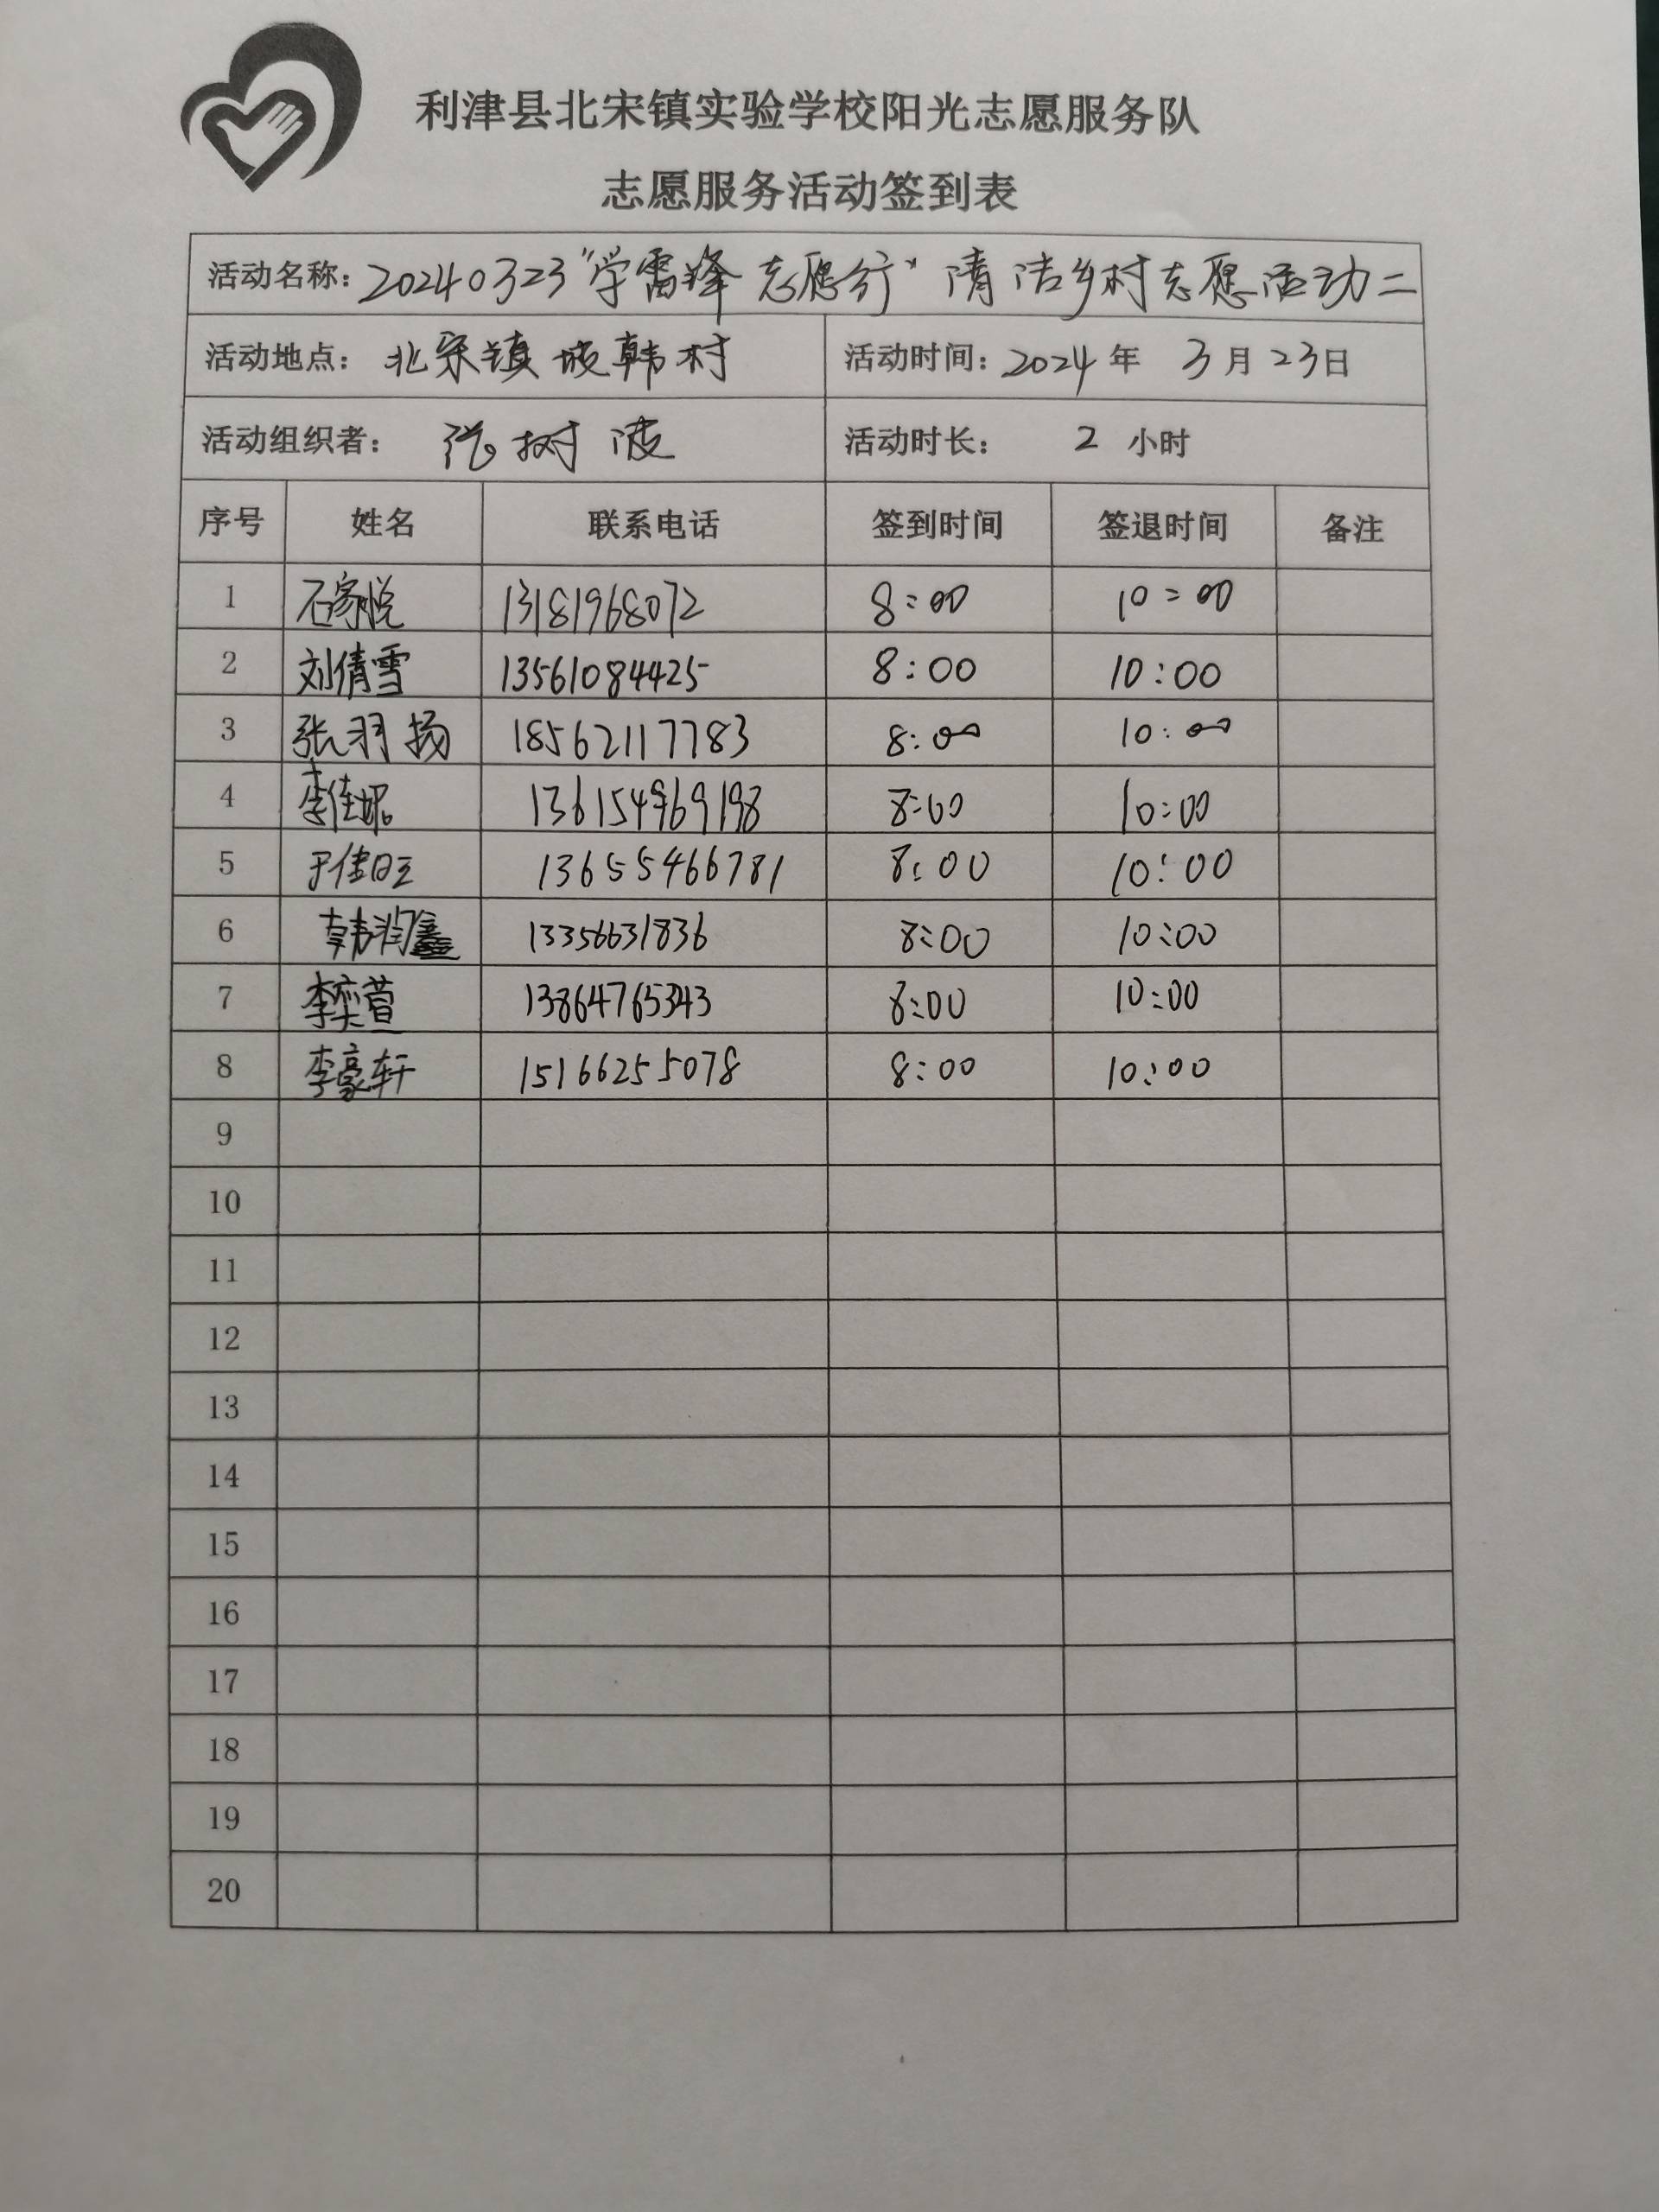 利津县北宋镇实验学校阳光志愿服务队
志愿服务活动签到表
活动名称：20240323"学雷锋 志愿行"清洁乡村志愿活动二
活动地点：北宋镇坡韩村 活动时间：2024年 3月23日
活动组织者：张树 活动时长：2 小时
序号 姓名 联系电话 签到时间 签退时间 备注
1 石家悦 13181968072 8:00 10:00
2 刘倩雪 13561084425 8:00 10:00
3 张羽扬 18562117783 8:00 10:00
4 李佳妮 8:00 10:00
5 于佳旺 13655466781 8:00 10:00
6 韩润鑫 13356631836 8:00 10:00
7 李奕萱 13864765343 8:00 10:00
8 李豪轩 15166255078 8:00 10:00
9
10
11
12
13
14
15
16
17
18
19
20